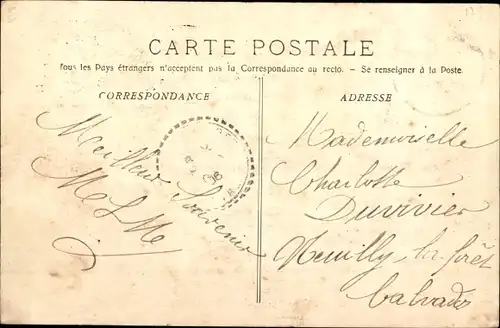 CARTE POSTALE
Tous les Pays étrangers n'acceptent pas la Correspondance au recto. - Se renseigner à la Poste.
CORRESPONDANCE
ADRESSE
Meilleur Souvenir
Mademoiselle
Charlotte
Duvivier
Neuilly la forêt
Calvados